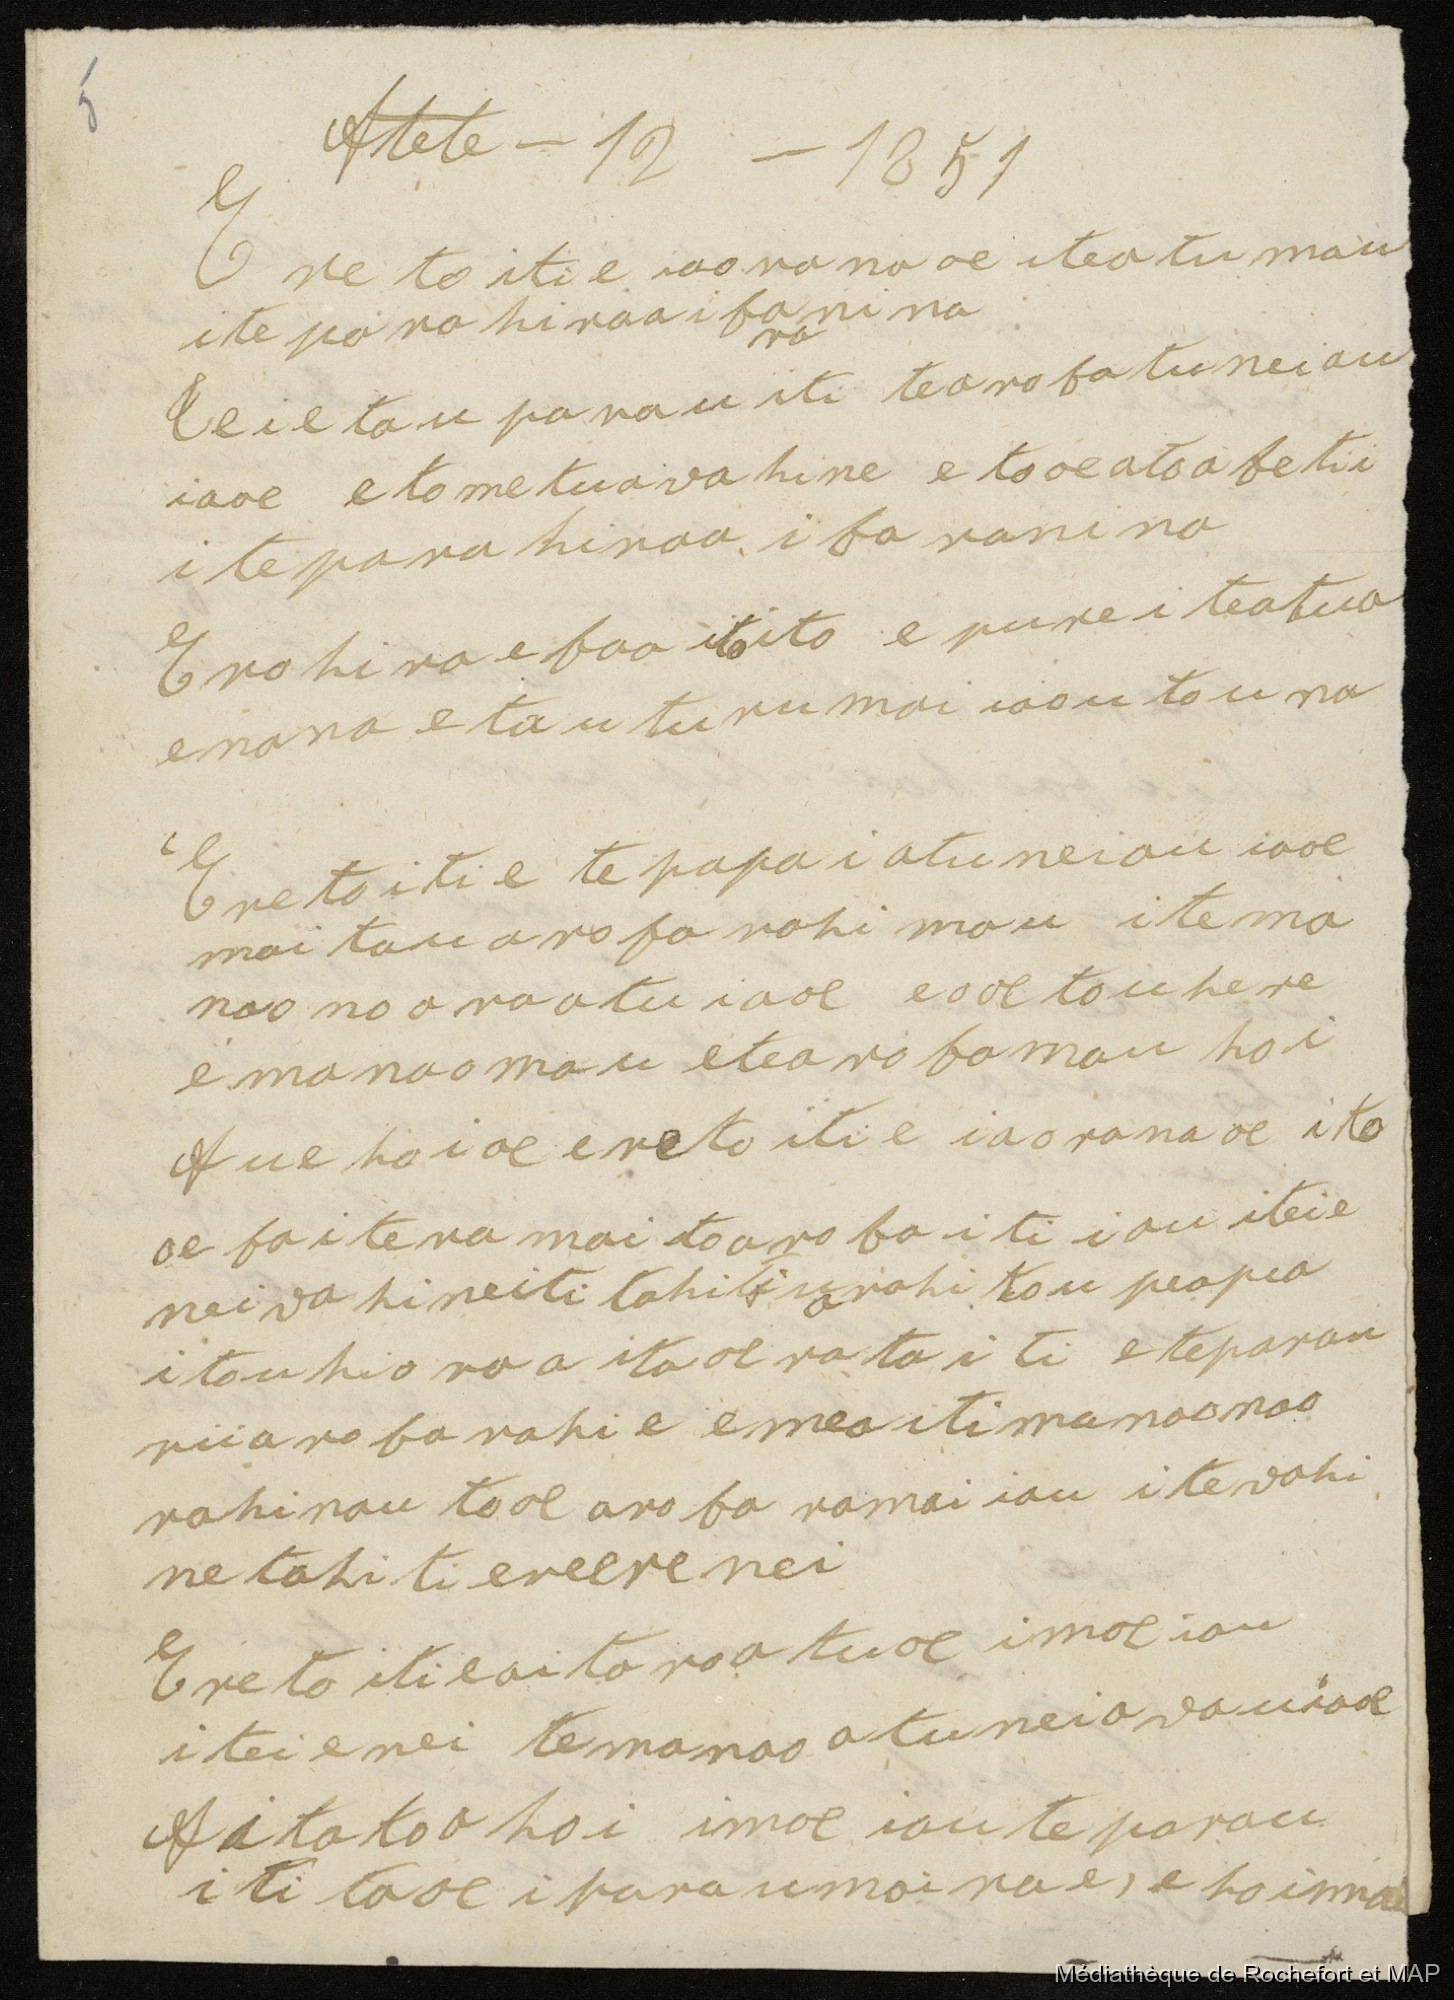 5
Atete — 12 — 1851
E re to iti e iaorana oe i te atua mau
i te parahiraa i fanina
ra
Teie tau parau iti te arofa tu nei au
ia oe e to metua vahine e to oe atoa fetii
i te parahiraa i farani na
E rahi ra e faa itoito e pure i te atua
e na na e tauturu mai ia outou na
E reto iti e te papai atu nei au ia oe
mai tau arofa rahi mau i te ma
nao noaraa tu ia oe e o oe tou here
e manao mau e te arofa mau hoi
Aue hoi oe e reto iti e iaorana oe i to
oe faitera mai to arofa iti iau i teie
nei vahine iti tahiti ua rahi tou peapea
i tou hioraa i ta oe rata iti e te parau
rii arofa rahi e e mea iti manaonao
rahi nau to oe arofa ra mai iau i te vahi
ne tahiti ereere nei
E reto iti e aita roa tu oe i moe iau
i teie nei te manao atu nei a vau ia oe
Aita toa hoi i moe iau te parau
iti ta oe i parau mai ra e, e hoi mai
Médiathèque de Rochefort et MAP